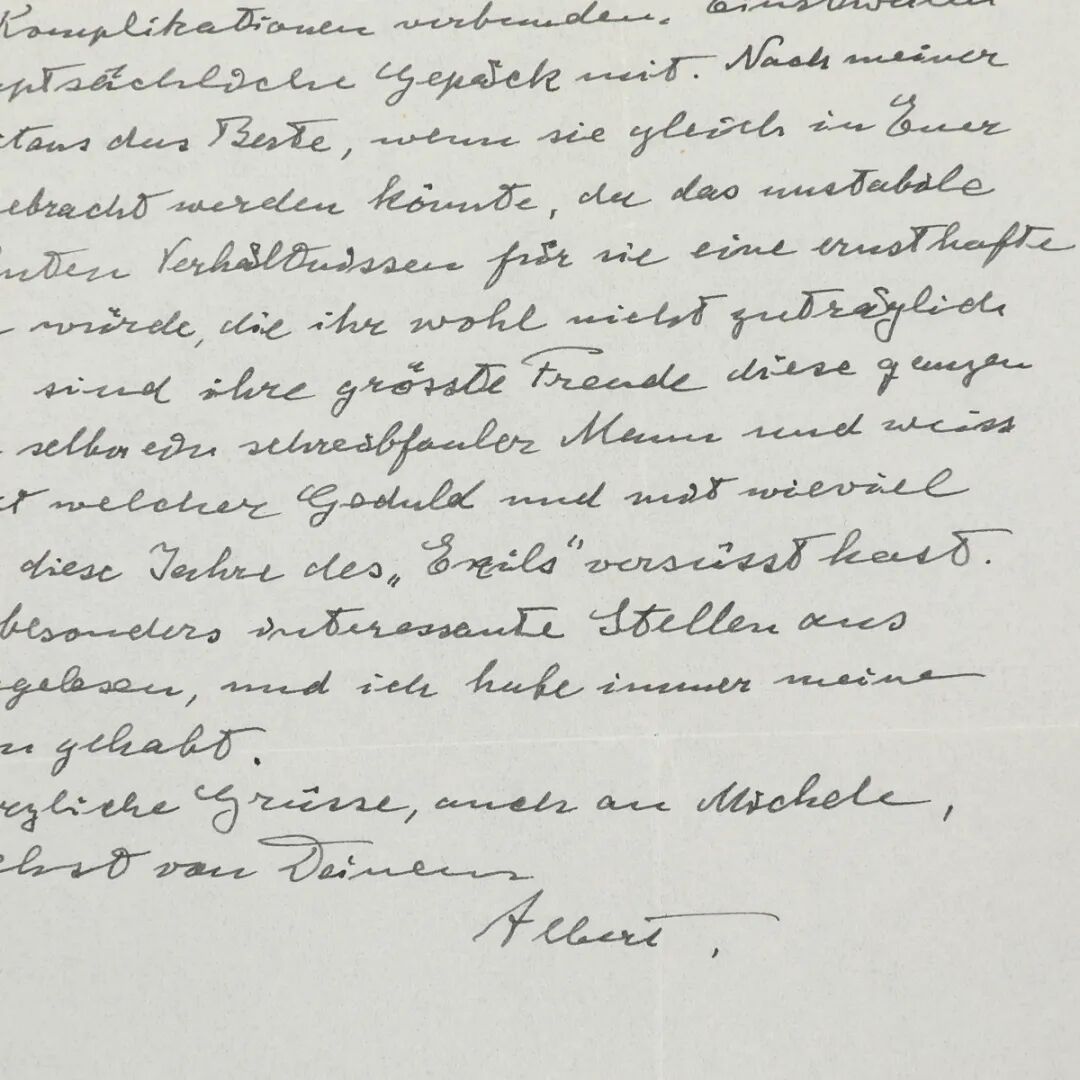 Komplikationen verbunden. Einstweilen
ptsächliche Gepäck mit. Nach meiner
taus das Beste, wenn sie gleich in Euer
ebracht werden könnte, da das unstabile
nten Verhältnissen für sie eine ernsthafte
würde, die ihr wohl nicht zuträglich
sind ihre grösste Freude diese ganzen
selber ein schreibfauler Mann und weiss
t welcher Geduld und mit wieviel
diese Jahre des „Exils“ versüsst hast.
besonders interessante Stellen aus
gelesen, und ich habe immer meine
n gehabt.
rzliche Grüsse, auch an Michele,
chst von Deinem
Albert.